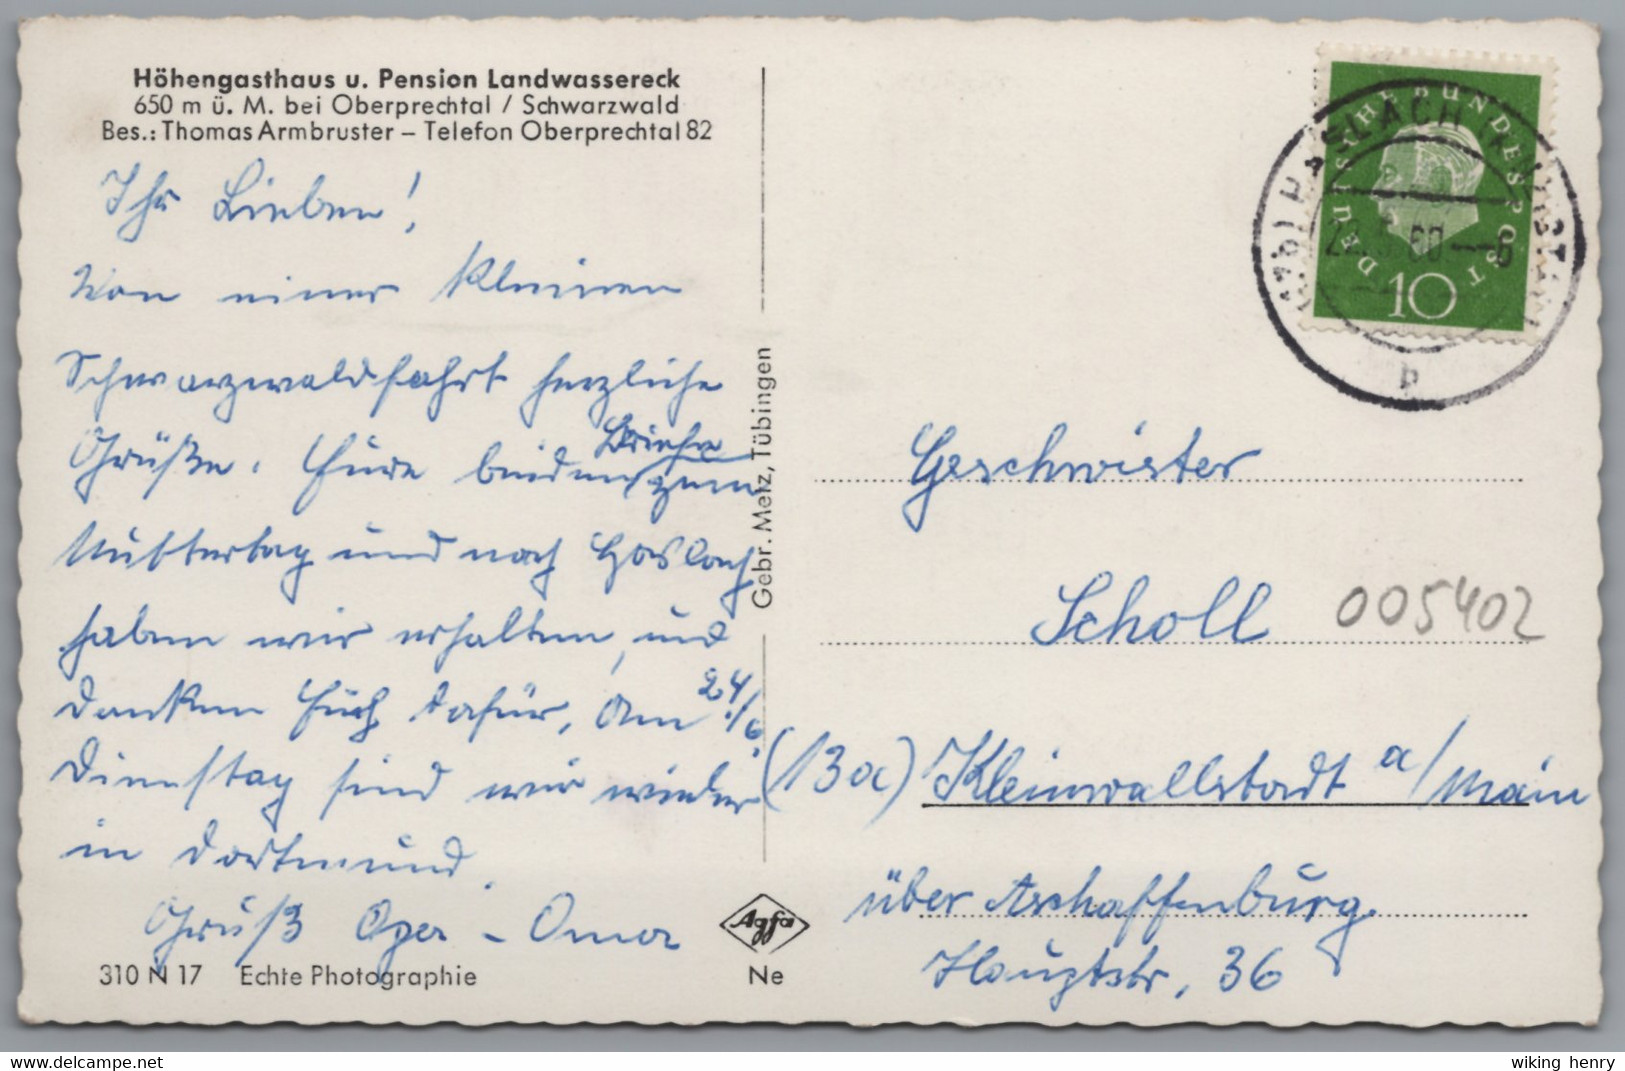 Höhengasthaus u. Pension Landwassereck
650 m ü. M. bei Oberprechtal / Schwarzwald
Bes.: Thomas Armbruster – Telefon Oberprechtal 82
Ihr Lieben!
Von einer kleinen
Schwarzwaldfahrt herzliche
Grüße. Eure beiden Briefe zum
Muttertag und nach Haslach
haben wir erhalten, und
danken Euch dafür. Am 24./6.
Dienstag sind wir wieder
in Dortmund.
Gruß Opa – Oma
310 N 17 Echte Photographie
Gebr. Metz, Tübingen
Agfa
Ne
DEUTSCHE BUNDESPOST
10
HASLACH
60
b
Geschwister
Scholl
005402
(13a) Kleinwallstadt a/Main
über Aschaffenburg.
Hauptstr. 36
www.delcampe.net
wiking henry